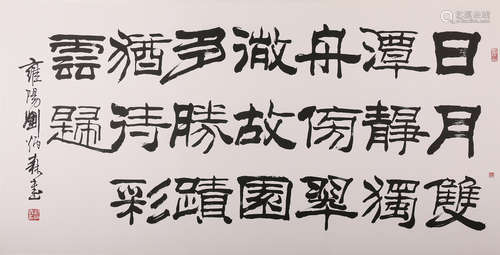 日月雙
潭靜獨
舟傍翠
微故園
多勝蹟
猶待彩
雲歸
雍陽劉炳森書